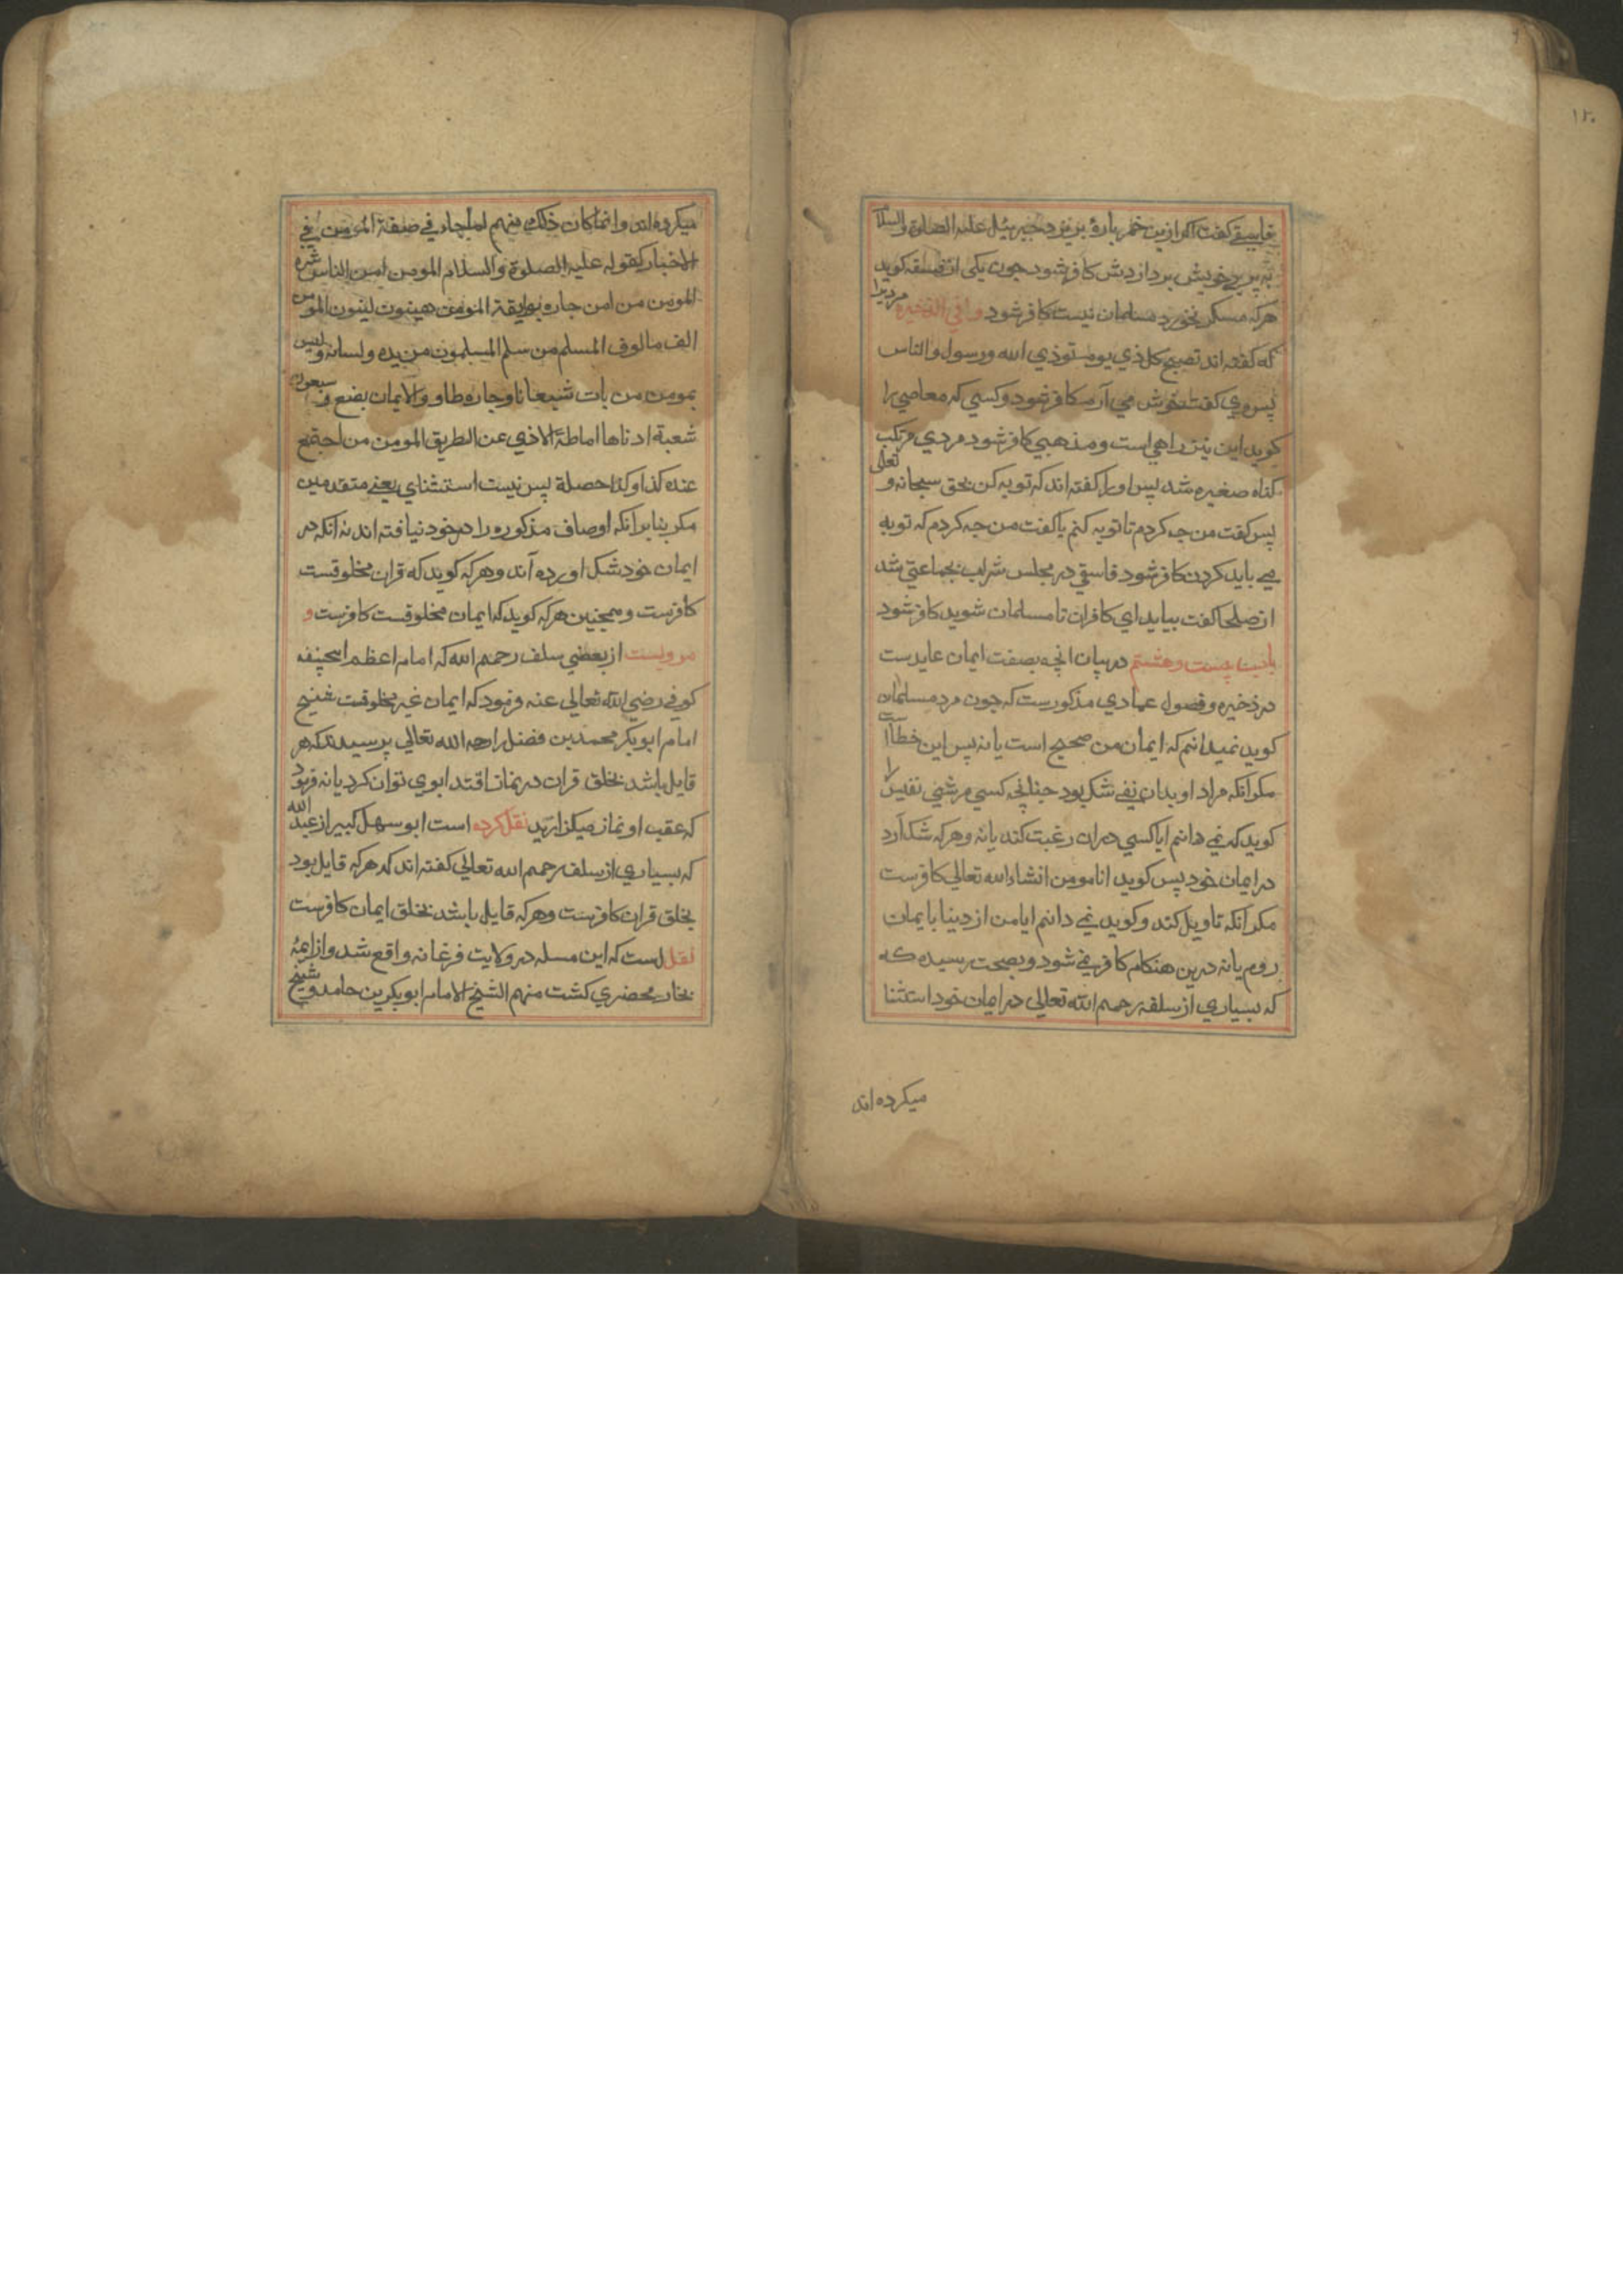 ۱۲۰
بفاسقی گفت اگر ازین خمر پارهٔ بریزد جبرئیل علیه الصلوة والسلام
به پر خویش بردازدش کافر شود چون یکی از فسقه کوید
هرکه مسکر نخورد مسلمان نیست کافر شود وفی الذخیره مردیرا
که کفته اند تصبح کل ذی یوم ستوذی الله ورسول والناس
پس وی کفت خوش می آرم کافر شود وکسی که معاصی را
کوید این نیز راهی است ومذهبی کافر شود مردی مرتکب
کناه صغیره شد پس اورا کفته اند که توبه کن بحق سبحانه و تعالی
پس کفت من چه کردم تا توبه کنم یا کفت من چه کردم که توبه
می باید کردن کافر شود فاسقی در مجلس شراب بجماعتی شد
از صلحا کفت بیاید ای کافران تا مسلمان شوید کافر شود
باب بیست وهشتم در بیان انچه بصفت ایمان عایدست
در ذخیره وفصول عمادی مذکورست که چون مرد مسلمان
کوید نمیدانم که ایمان من صحیح است یا نه پس این خطاا ست
مکر آنکه مراد او بدان نفی شک بود چنانچه کسی مر شئی نفیس را
کوید که نمی دانم ایا کسی دران رغبت کند یا نه وهرکه شک آرد
در ایمان خود پس کوید انا مومن انشاء الله تعالی کافرست
مکر آنکه تاویل کند وکوید نمی دانم ایا من از دینا با ایمان
روم یا نه درین هنکام کافر نمی شود وبصحت رسیده که
که بسیاری از سلف رحمهم الله تعالی در ایمان خود استثنا
میکرده اند
میکرده اند وانما کان ذلک منهم لما جاء فی صفة المومن فی
الاخبار کقوله علیه الصلوة والسلام المومن امن الناس شره
المومن من امن جاره بوایقه المومن هینون لینون المومن
الف مالوف المسلم من سلم المسلمون من یده ولسانه ولیس
بمومن من بات شبعانا وجاره طاو والایمان بضع و سبعون
شعبة ادناها اماطة الاذی عن الطریق المومن من اجتمع
عنده کذا وکذا حصلة پس نیست استثنای بعضی متقدمین
مکر بنابر آنکه اوصاف مذکوره را در خود نیافته اند نه آنکه در
ایمان خود شک اورده آند وهرکه کوید که قران مخلوقست
کافرست وهمچنین هرکه کوید که ایمان مخلوقست کافرست و
مرویست از بعضی سلف رحمهم الله که امام اعظم ابیحنیفه
کوفی رضی الله تعالی عنه فرمود که ایمان غیر مخلوقست شیخ
امام ابوبکر محمد بن فضل را رحمه الله تعالی پرسیدند که هر
قایل باشد بخلق قران در نماز اقتدا بوی توان کرد یا نه فرمود
که عقب او نماز میکزارید نقل کرده است ابو سهل کبیر از عبد الله
که بسیاری از سلف رحمهم الله تعالی کفته اند که هرکه قایل بود
بخلق قران کافرست وهرکه قایل باشد بخلق ایمان کافرست
نقل است که این مسله در ولایت فرغانه واقع شد وازایمهٔ
بخارا محضری کشت منهم الشیخ الامام ابوبکر بن حامد و شیخ